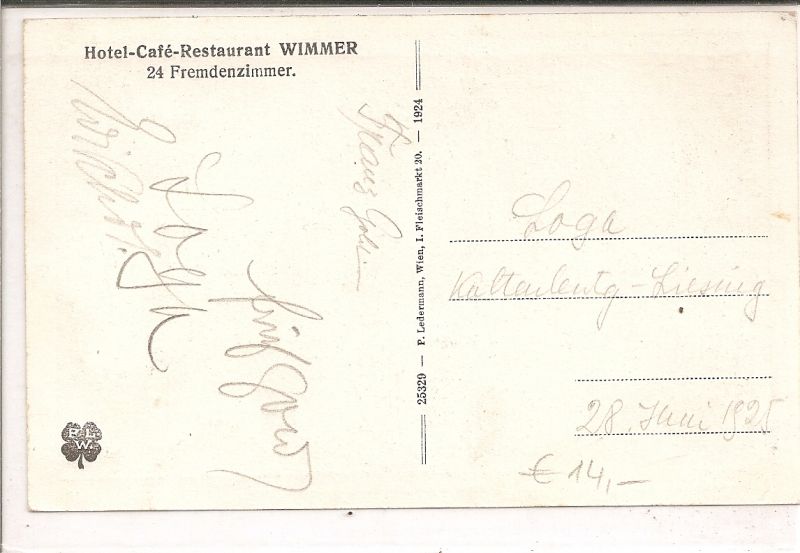 Hotel-Café-Restaurant WIMMER
24 Fremdenzimmer.
Erich
Loga
Franz
25329 — P. Ledermann, Wien, I. Fleischmarkt 20. — 1924
Loga
Kaltenleutg-Liesing
28. Juni 1925
€ 14,-
P. L.
W.